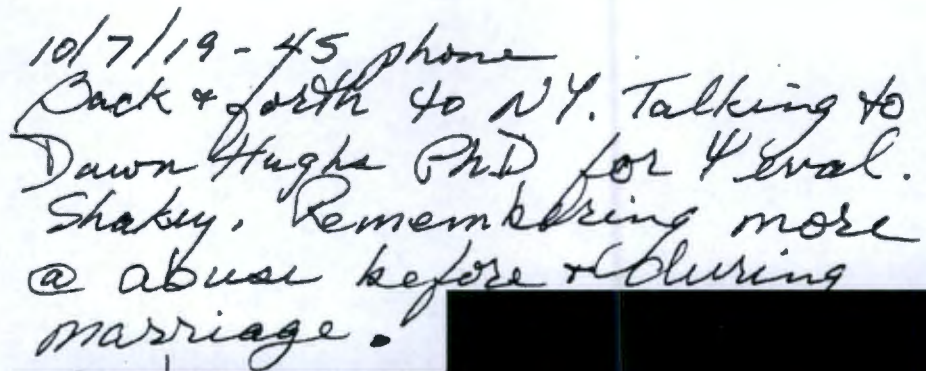 10/7/19 - 45 phone
Back & forth to NY. Talking to
Dawn Hughs PhD for Ψ eval.
Shakey. Remembering more
@ abuse before & during
marriage.